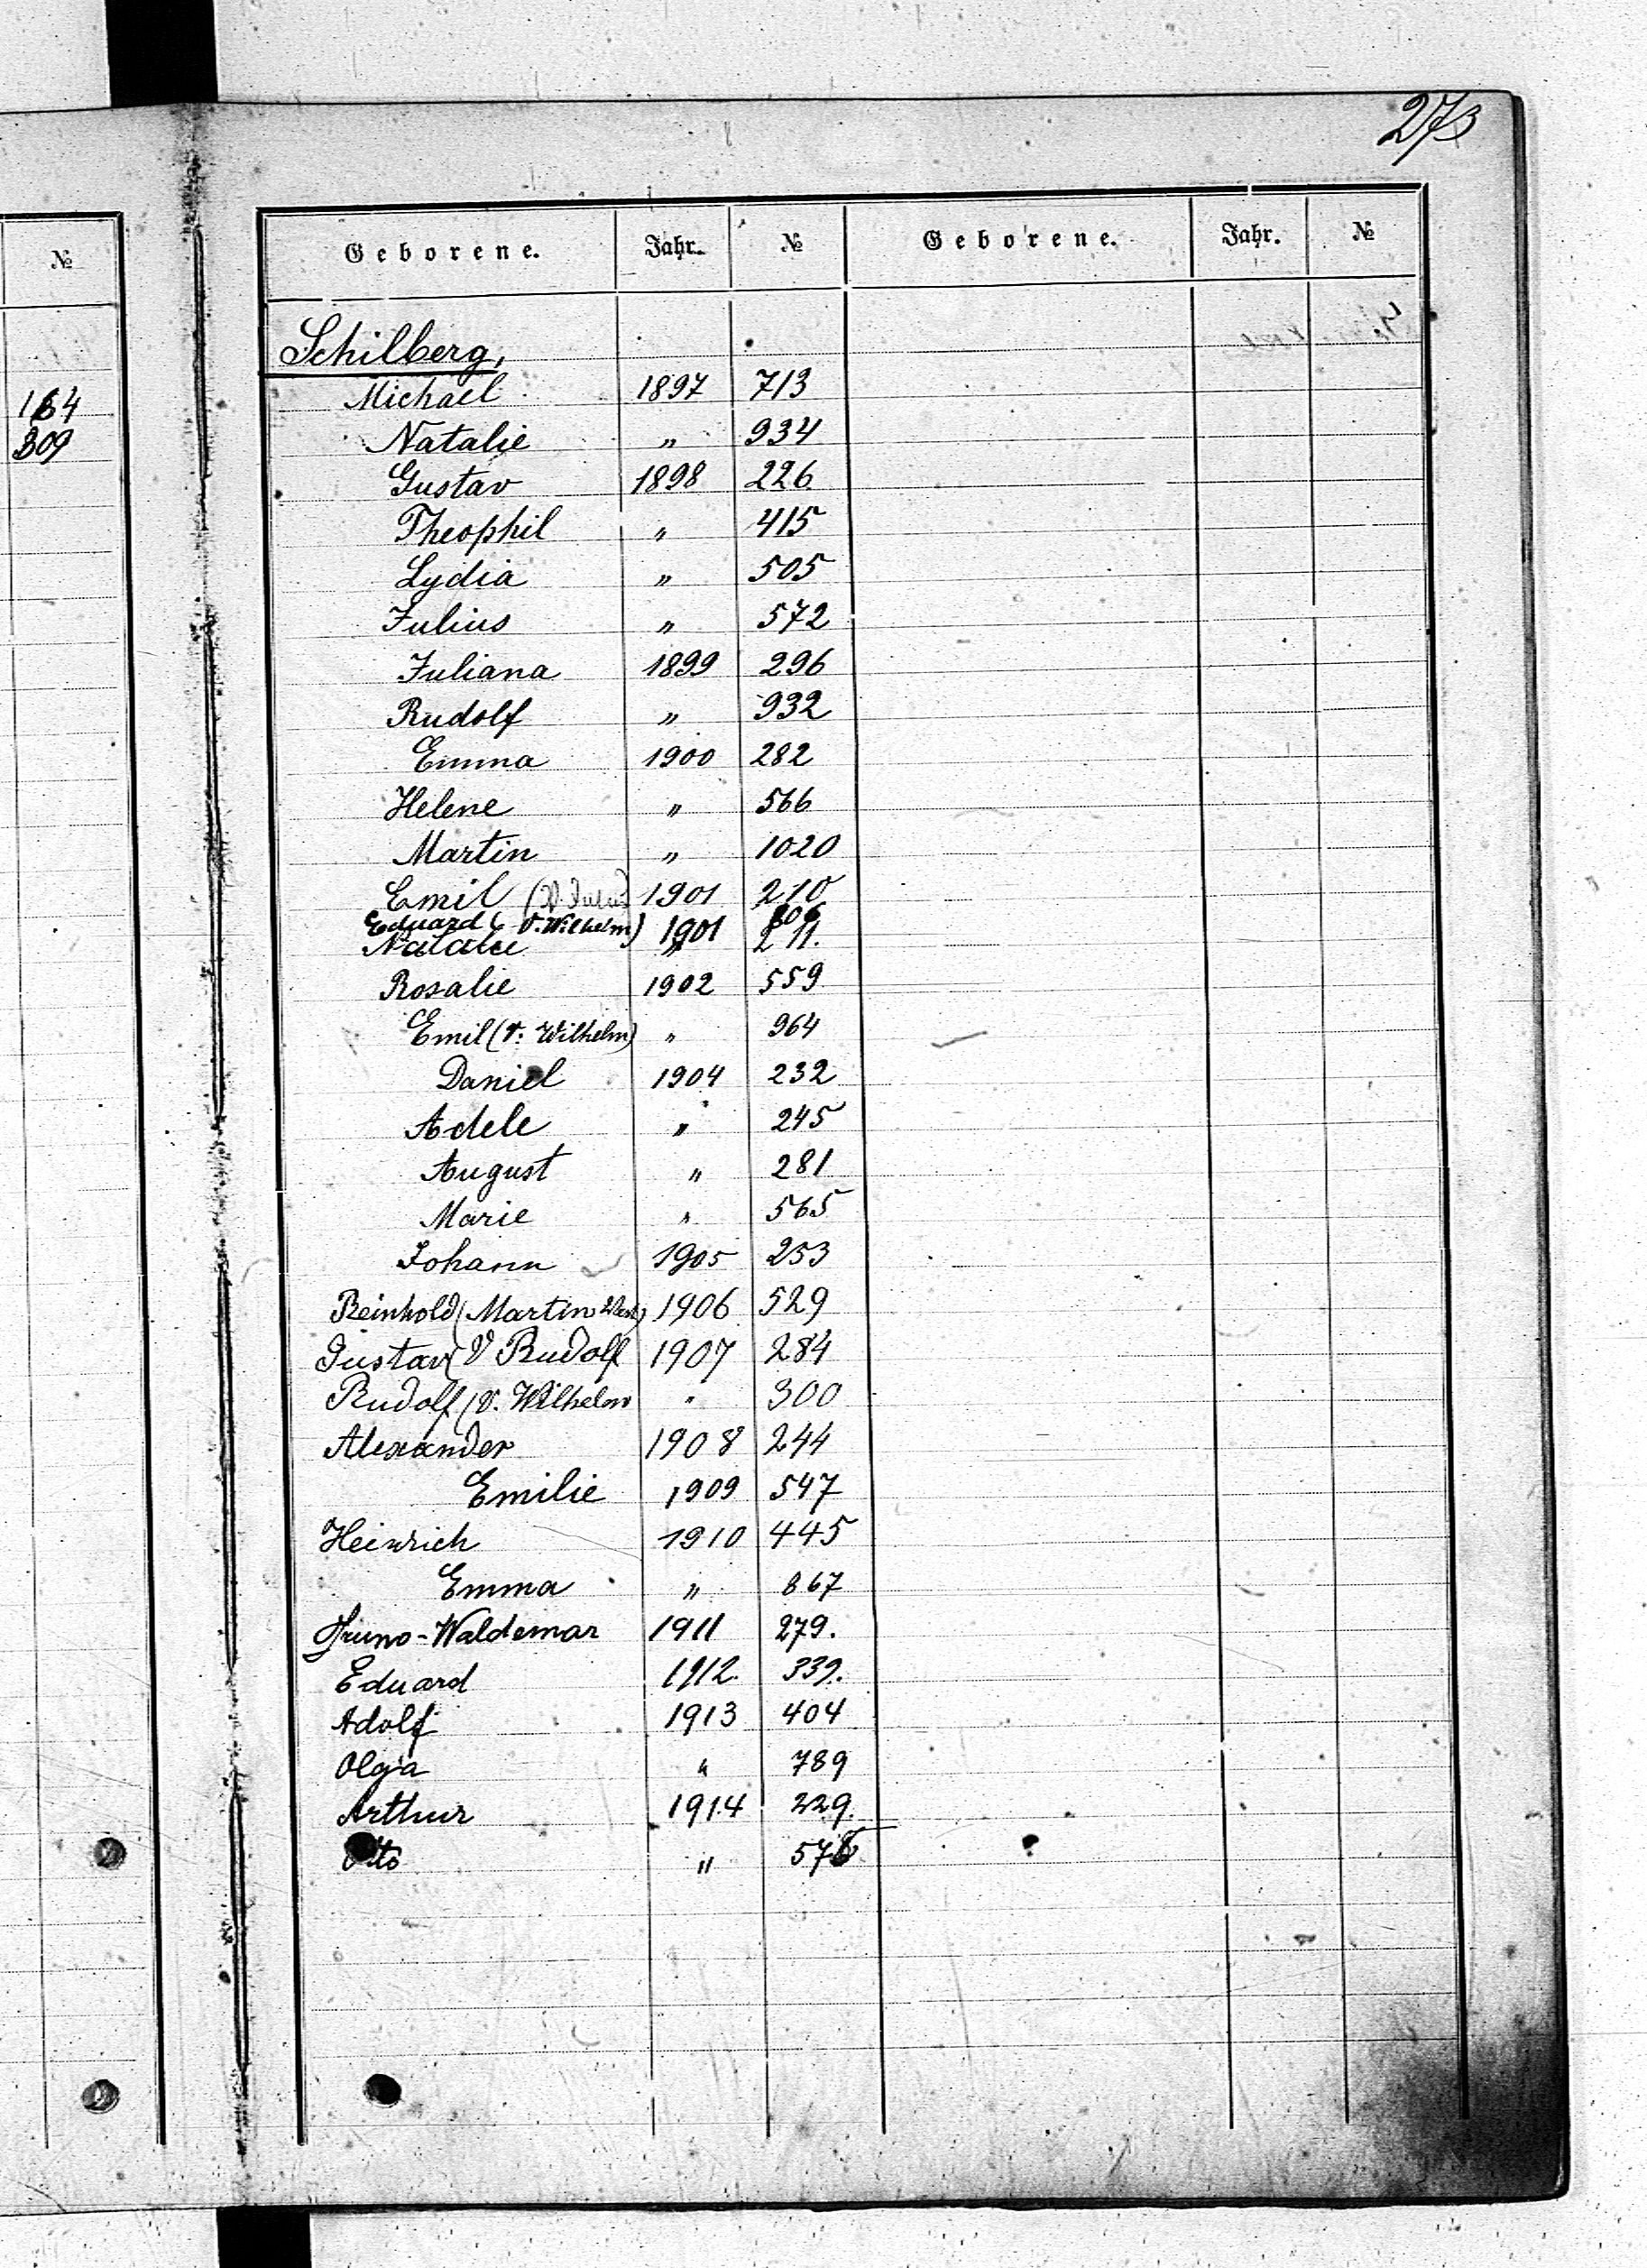 273
№
164
309
Geborene. Jahr. № Geborene. Jahr. №
Schilberg,
Michael 1897 713
Natalie " 934
Gustav 1898 226
Theophil " 415
Lydia " 505
Julius " 572
Juliana 1899 296
Rudolf " 932
Emma 1900 282
Helene " 566
Martin " 1020
Emil (V. 1901 210
Eduard (V. Wilhelm) 1901 806
Natalie " 211.
Rosalie 1902 559
Emil (V: Wilhelm) " 964
Daniel 1904 232
Adele " 245
August " 281
Marie " 565
Johann 1905 253
Reinhold (Martin 1906 529
Gustav (V Rudolf 1907 284
Rudolf (V. Wilhelm " 300
Alexander 1908 244
Emilie 1909 547
Heinrich 1910 445
Emma " 867
Bruno-Waldemar 1911 279.
Eduard 1912. 339.
Adolf 1913 404
Olga " 789
Arthur 1914 229.
Otto "